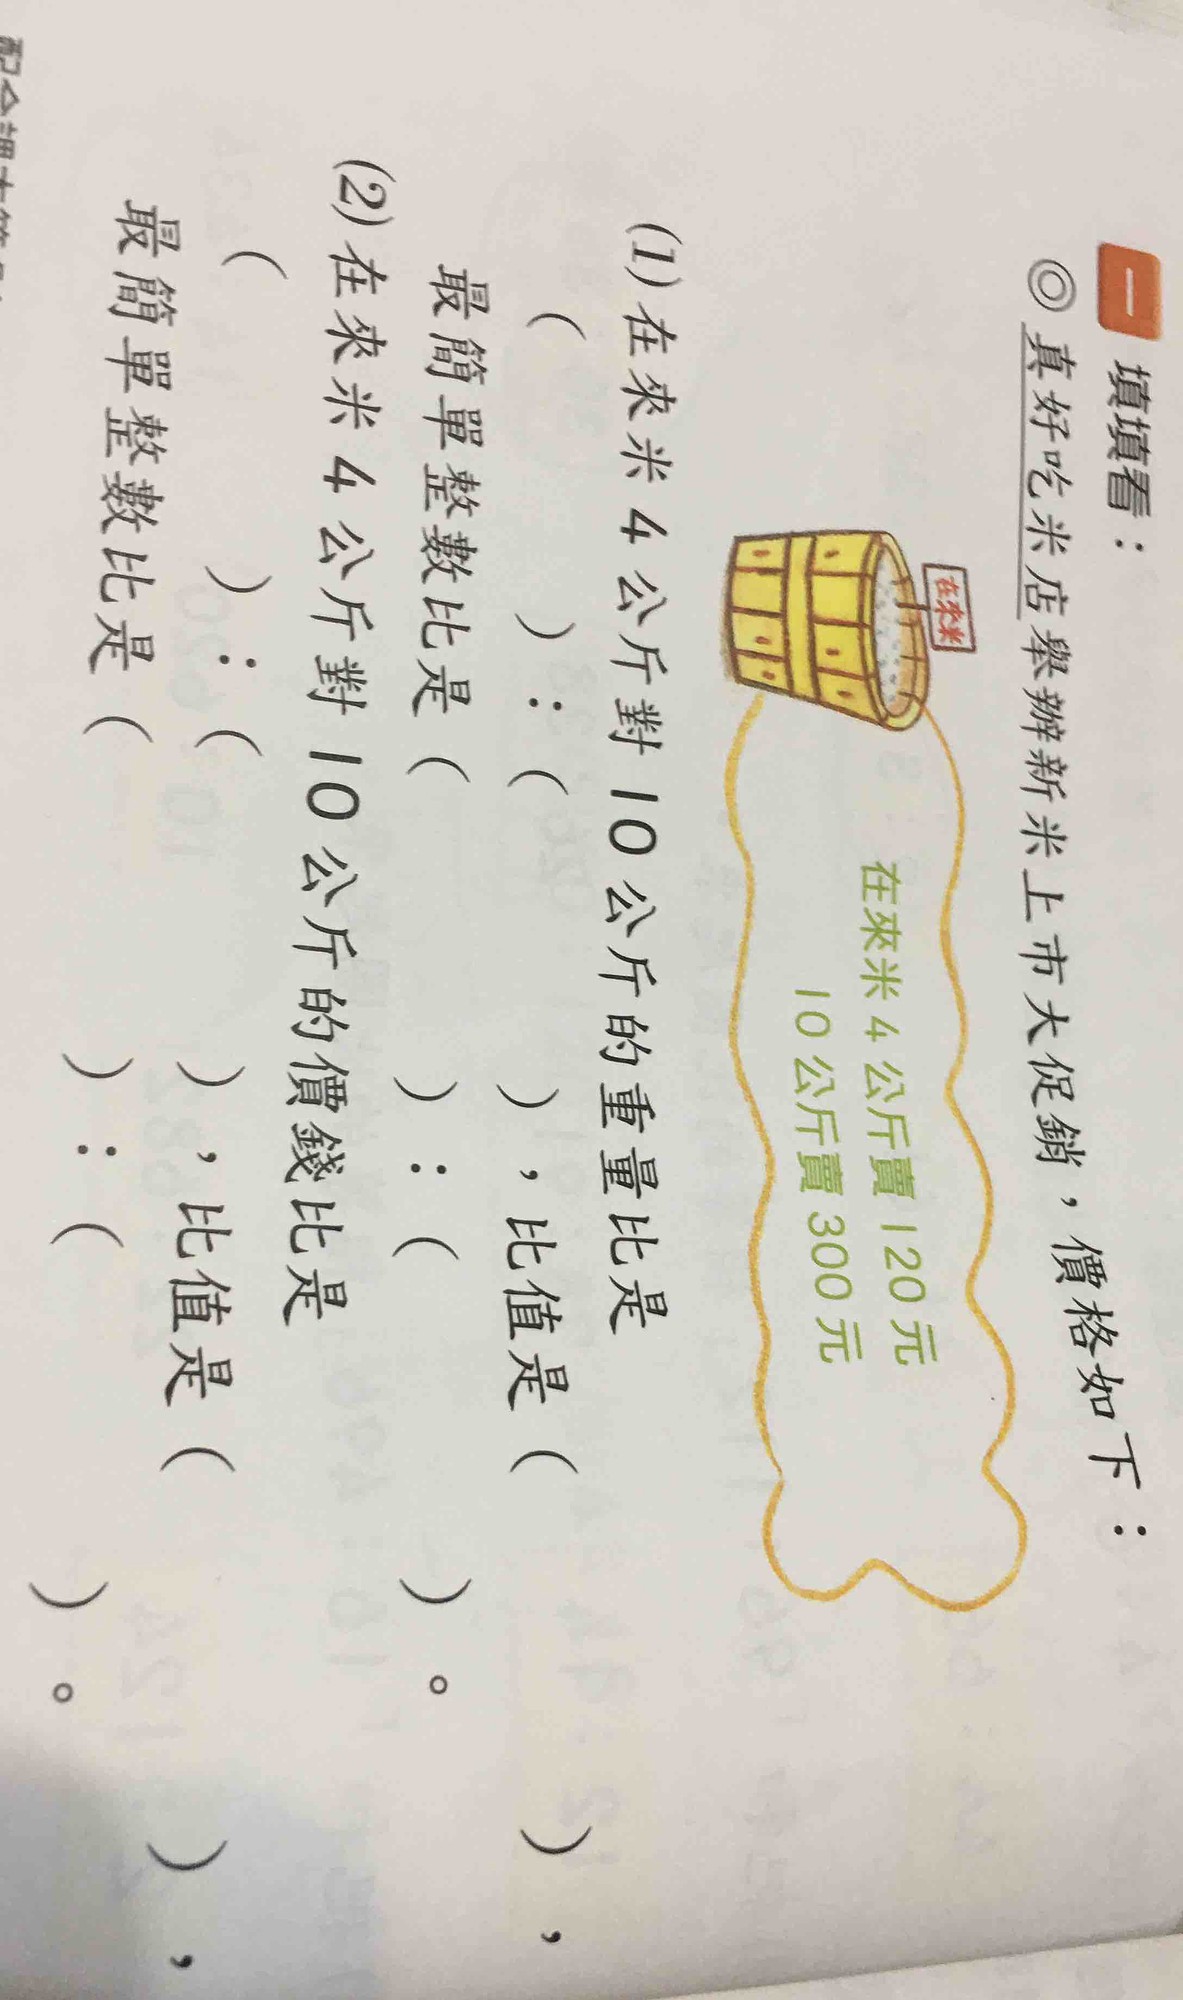 一 填填看：
◎真好吃米店舉辦新米上市大促銷，價格如下：
在來米
在來米4公斤賣120元
10公斤賣300元
(1)在來米4公斤對10公斤的重量比是
（　　）：（　　），比值是（　　），
最簡單整數比是（　　）：（　　）。
(2)在來米4公斤對10公斤的價錢比是
（　　）：（　　），比值是（　　），
最簡單整數比是（　　）：（　　）。